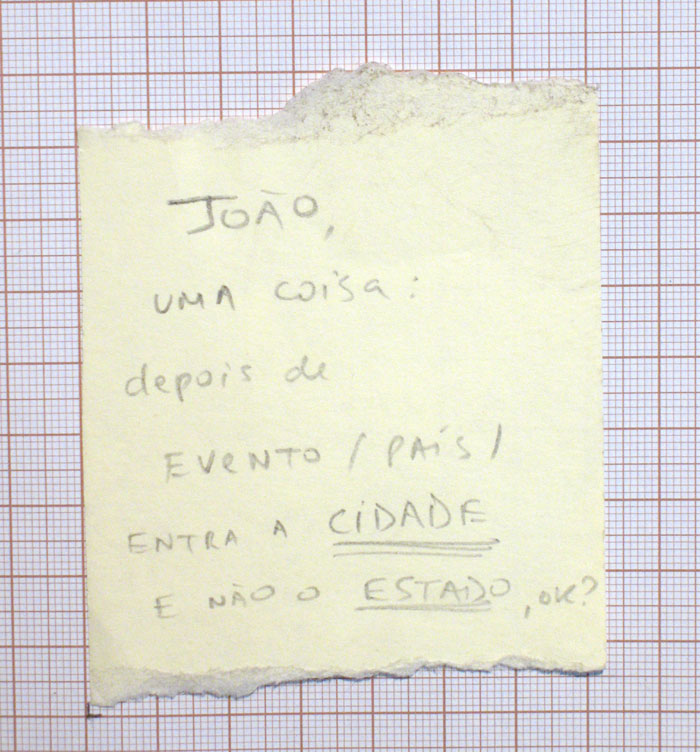 JOÃO,
UMA COISA:
depois de
EVENTO / PAÍS /
ENTRA A CIDADE
E NÃO O ESTADO, OK?